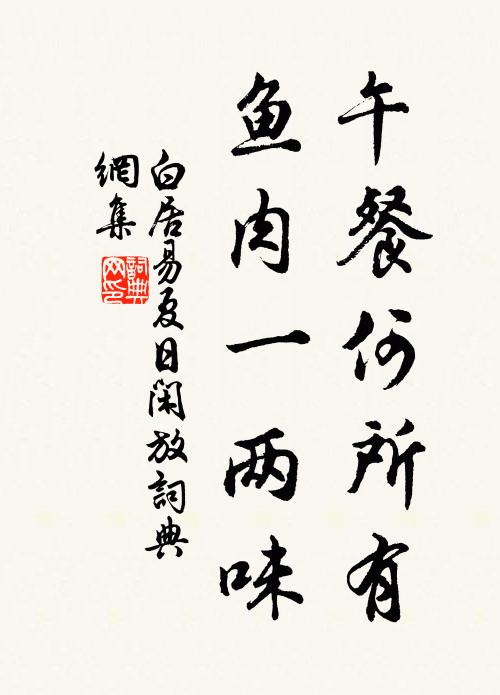 午餐何所有
鱼肉一两味
白居易夏日闲放詞典
網集
詞典
网印